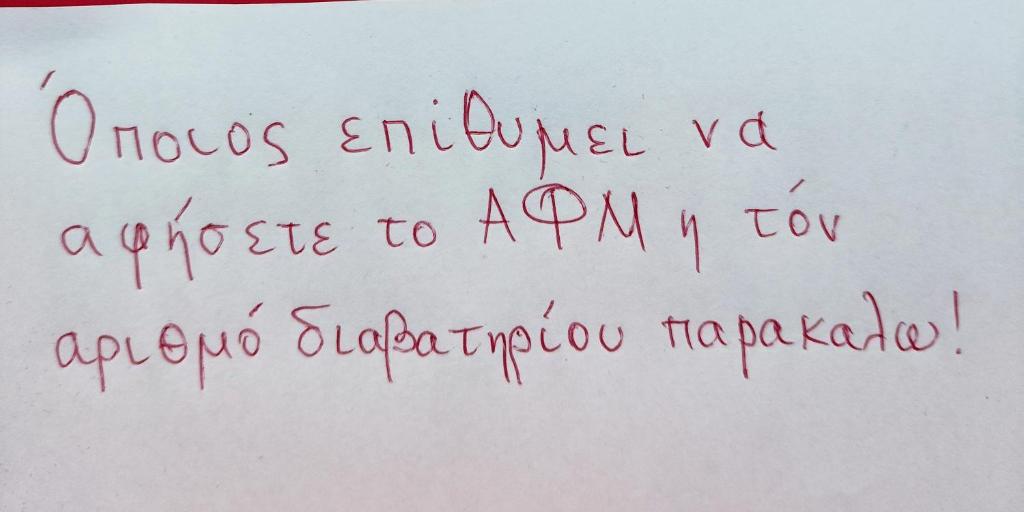 Όποιος επίθυμει να
αφήσετε το ΑΦΜ η τόν
αριθμό διαβατηρίου παρακαλω!